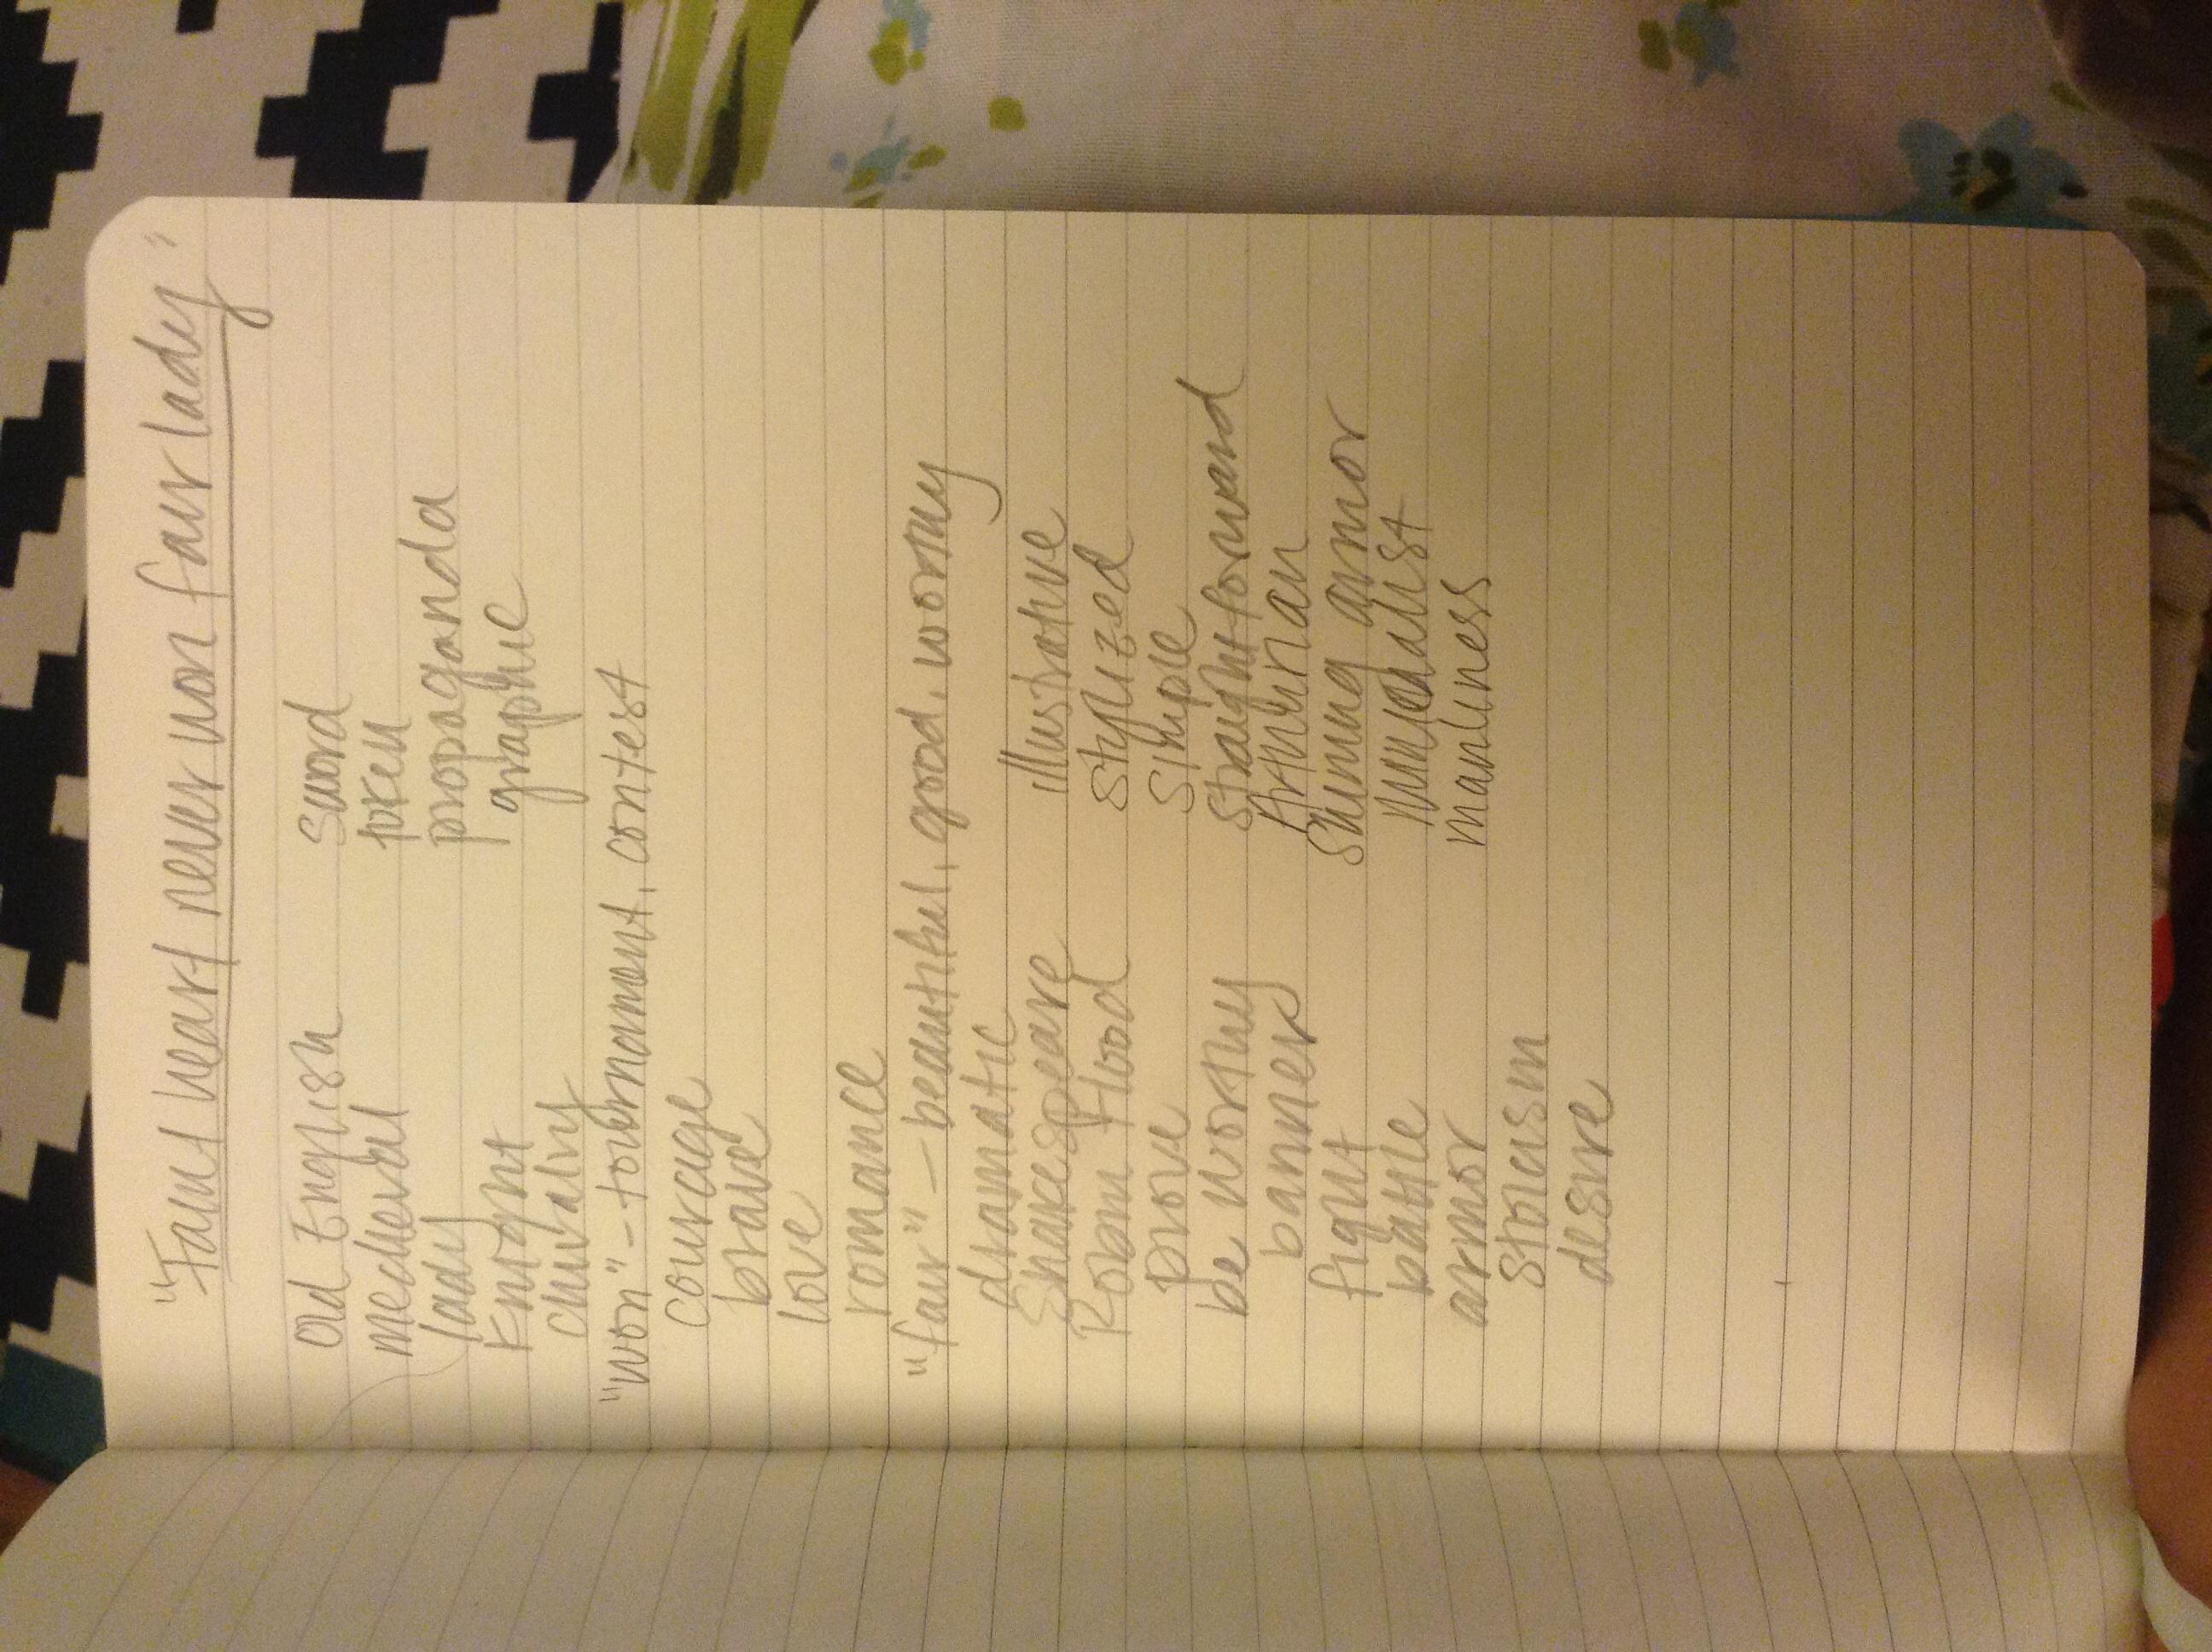 "Faint heart never won fair lady"
Old English
medieval
lady
knight
chivalry
"won" – tournament, contest
courage
brave
love
romance
"fair" – beautiful, good, worthy
dramatic
Shakespeare
Robin Hood
prove
be worthy
banner
fight
battle
armor
stoicism
desire
sword
token
propaganda
graphic
illustrative
stylized
simple
straightforward
Arthurian
shining armor
minimalist
manliness